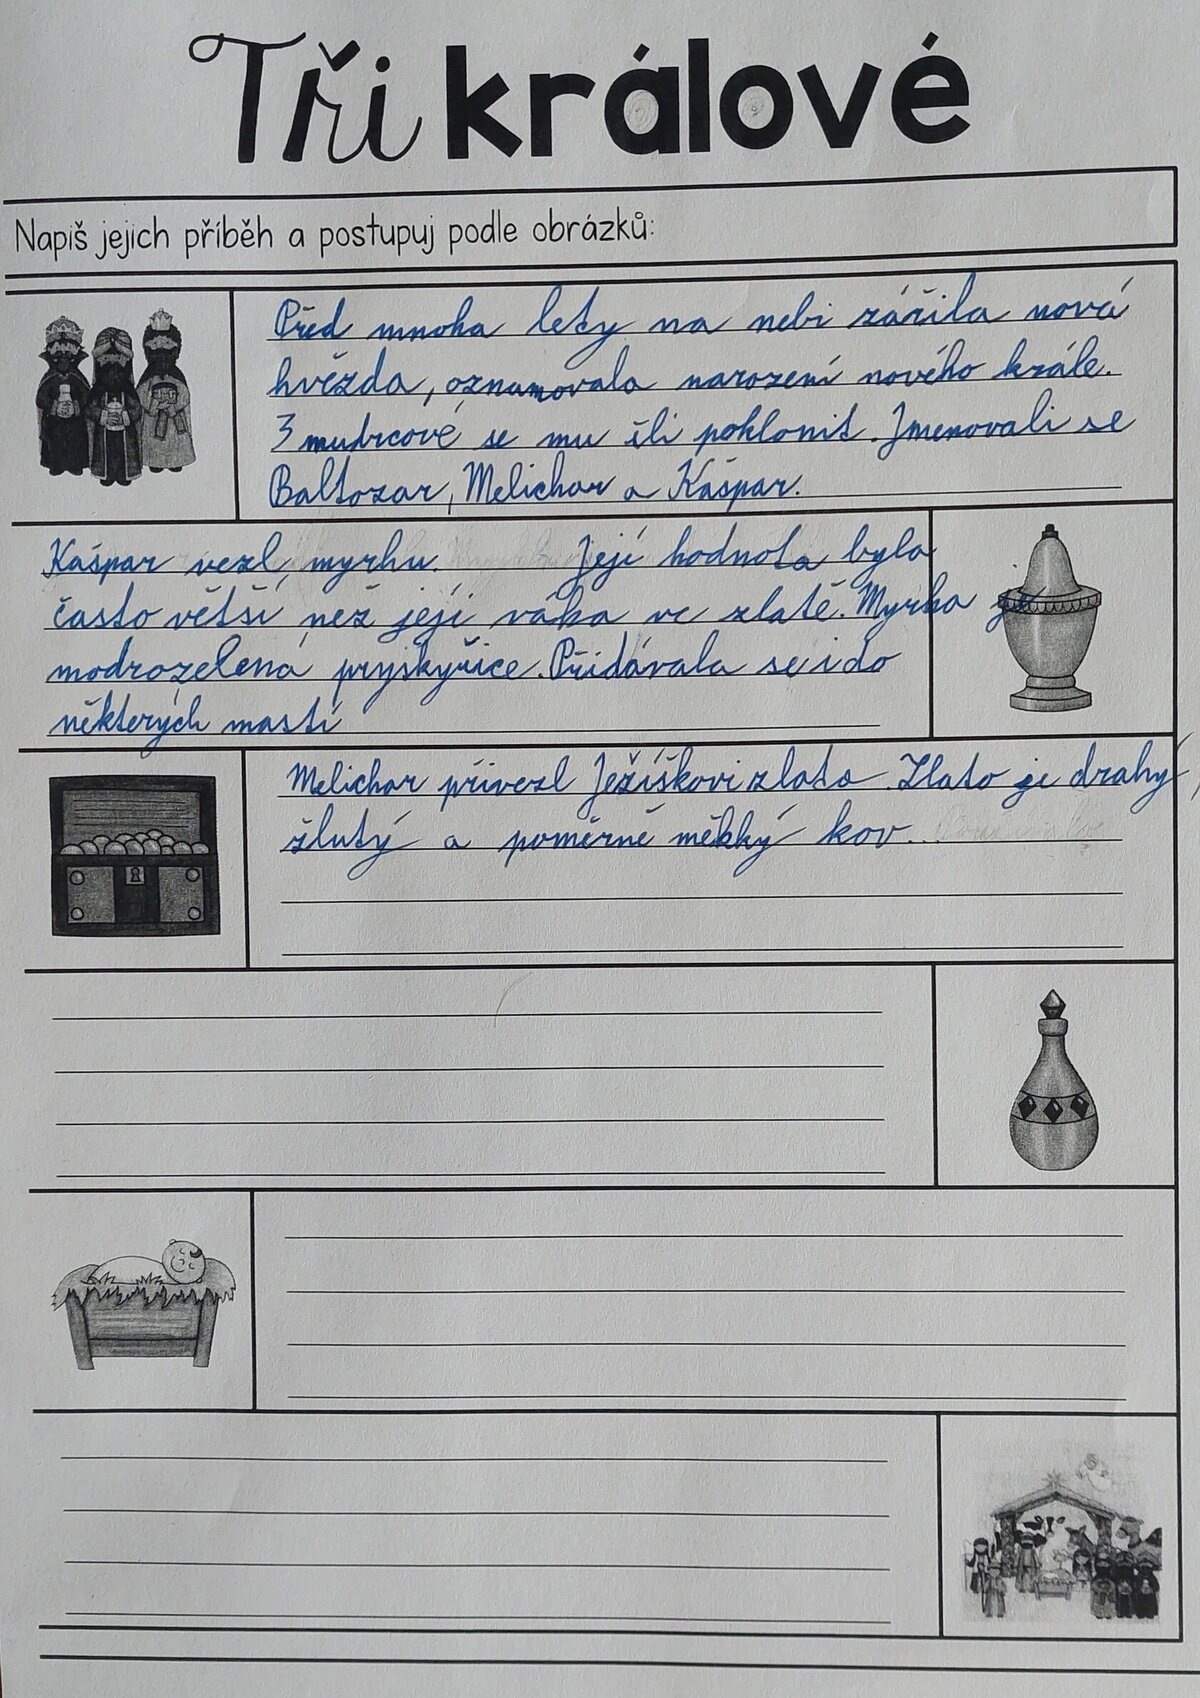 Tři králové
Napiš jejich příběh a postupuj podle obrázků:
Před mnoha lety na nebi zářila nová
hvězda, oznamovala narození nového krále.
3 mudrcové se mu šli poklonit. Jmenovali se
Baltazar, Melichar a Kašpar.
Kašpar vezl myrhu. Její hodnota byla
často větší než její váha ve zlatě. Myrha je
modrozelená pryskyřice. Přidávala se i do
některých mastí
Melichar přivezl Ježíškovi zlato. Zlato je drahý,
žlutý a poměrně měkký kov...